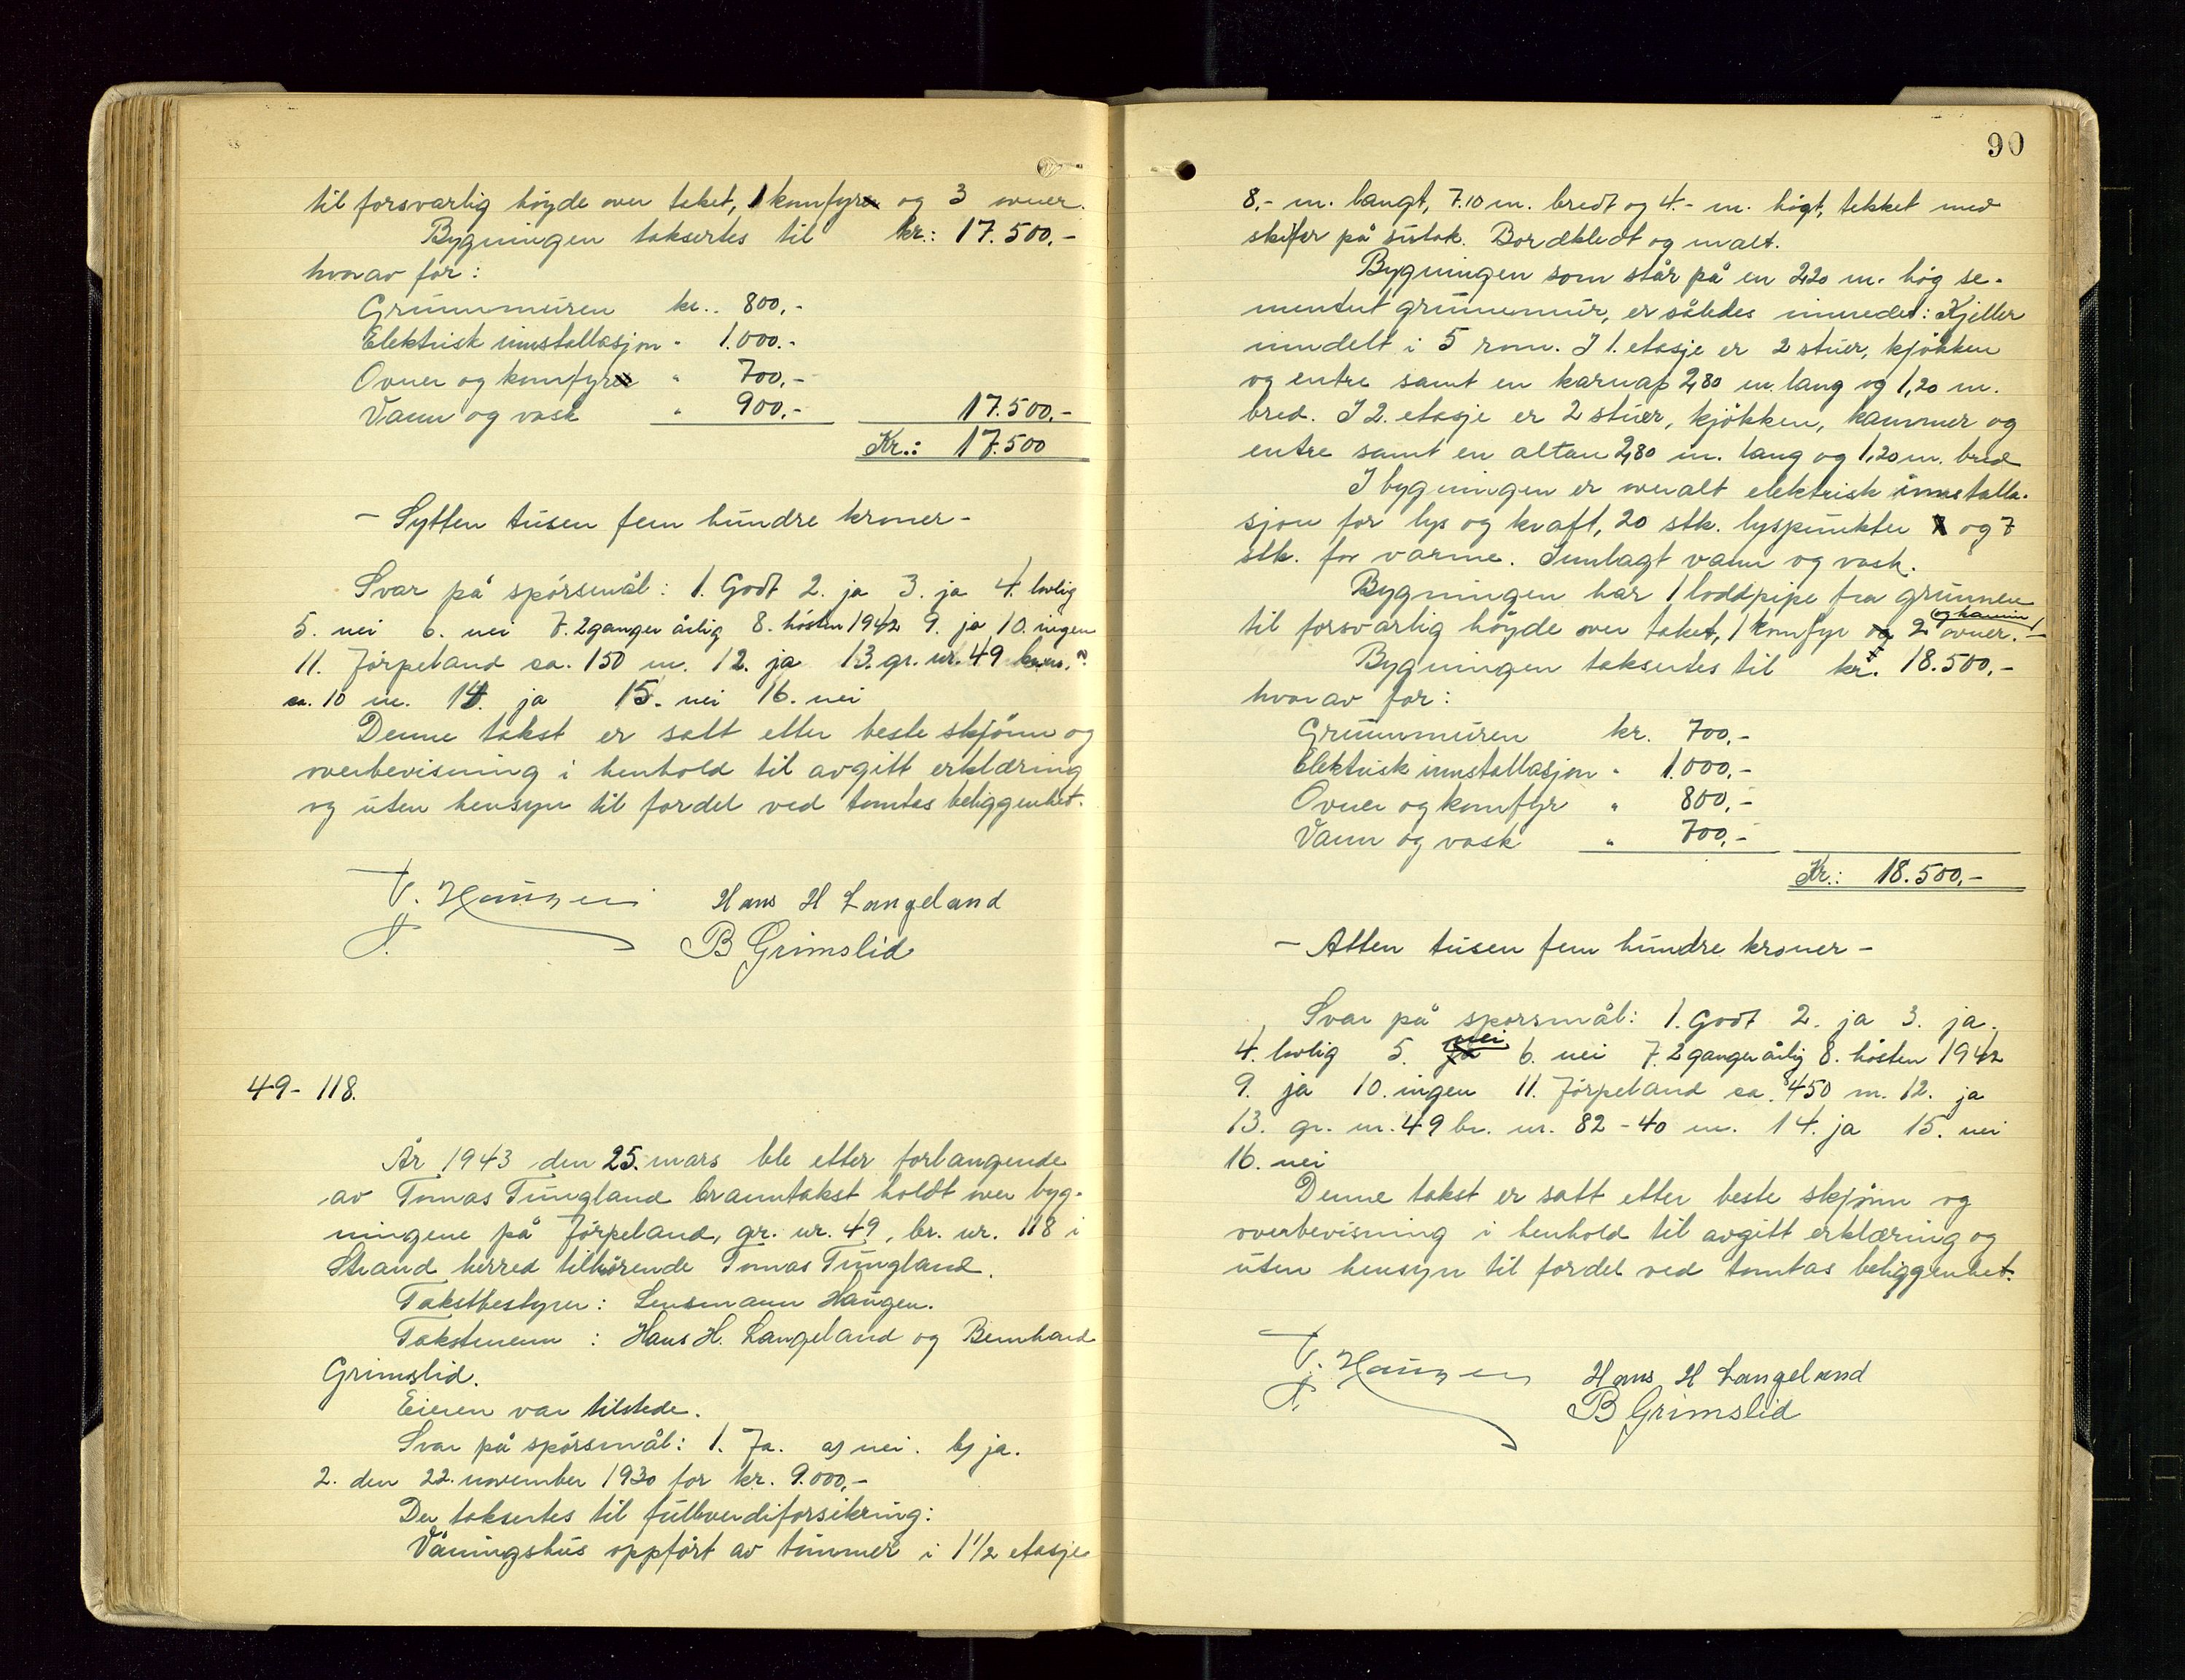 til forsvarlig høyde over taket, 1 komfyr og 3 ovner.
Bygningen taksertes til kr.: 17.500,-
hvorav for:
Grunnmuren kr.. 800,-
Elektrisk innstallasjon " 1.000.-
Ovner og komfyr " 700,-
Vann og vask " 900,- 17.500,-
Kr.: 17.500
- Sytten tusen fem hundre kroner -
Svar på spørsmål: 1. Godt 2. ja 3. ja 4. lovlig
5. nei 6. nei 7. 2 ganger årlig 8. høsten 1942 9. ja 10. ingen
11. Jørpeland ca. 150 m. 12. ja 13. gr. nr. 49
ca. 10 m. 14. ja 15. nei 16. nei
Denne takst er satt etter beste skjønn og
overbevisning i henhold til avgitt erklæring
og uten hensyn til fordel ved tomtas beliggenhet.
T. Haugen Hans H Langeland
B Grimslid
49- 118.
År 1943 den 25. mars ble etter forlangende
av Tomas Tungland branntakst holdt over byg-
ningene på Jørpeland, gr. nr. 49, br. nr. 118 i
Strand herred tilhørende Tomas Tungland.
Takstbestyrer: Lensmann Haugen.
Takstmenn : Hans H. Langeland og Bernhard
Grimslid.
Eieren var tilstede.
Svar på spørsmål: 1. Ja. a) nei. b) ja.
2. den 22. november 1930 for kr. 9.000,-
Der taksertes til fullverdiforsikring:
Våningshus oppført av tømmer i 1 1/2 etasje
90
8,- m. langt, 7.10 m. bredt og 4.- m. høgt, tekket med
skifer på sutak. Bordkledt og malt.
Bygningen som står på en 2,20 m. høg se-
mentert grunnmur, er således innredet: Kjeller
inndelt i 5 rom. I 1. etasje er 2 stuer, kjøkken
og entre samt en karnap 2,80 m. lang og 1,20 m.
bred. I 2. etasje er 2 stuer, kjøkken, kammer og
entre samt en altan 2,80 m. lang og 1,20 m. bred
I bygningen er overalt elektrisk innstalla-
sjon for lys og kraft, 20 stk. lyspunkter og 7
stk. for varme. Innlagt vann og vask.
Bygningen har 1 loddpipe fra grunnen
til forsvarlig høyde over taket, 1 komfyr og 2 ovner. og kamin
Bygningen taksertes til kr. 18.500,-
hvorav for:
Grunnmuren kr. 700,-
Elektrisk innstallasjon " 1.000,-
Ovner og komfyr " 800,-
Vann og vask " 700,-
Kr.: 18.500,-
- Atten tusen fem hundre kroner -
Svar på spørsmål: 1. Godt 2. ja 3. ja.
4. lovlig 5. ja nei 6. nei 7. 2 ganger årlig 8. høsten 1942
9. ja 10. ingen 11. Jørpeland ca. 450 m. 12. ja
13. gr. nr. 49 br. nr. 82 - 40 m. 14. ja 15. nei
16. nei
Denne takst er satt etter beste skjønn og
overbevisning i henhold til avgitt erklæring og
uten hensyn til fordel ved tomtas beliggenhet.
T. Haugen Hans H Langeland
B Grimslid